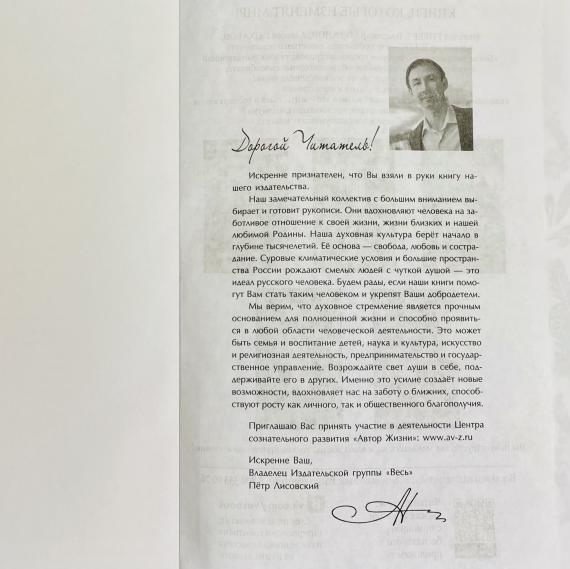 Дорогой Читатель!
Искренне признателен, что Вы взяли в руки книгу на-
шего издательства.
Наш замечательный коллектив с большим вниманием вы-
бирает и готовит рукописи. Они вдохновляют человека на за-
ботливое отношение к своей жизни, жизни близких и нашей
любимой Родины. Наша духовная культура берёт начало в
глубине тысячелетий. Её основа — свобода, любовь и состра-
дание. Суровые климатические условия и большие простран-
ства России рождают смелых людей с чуткой душой — это
идеал русского человека. Будем рады, если наши книги помо-
гут Вам стать таким человеком и укрепят Ваши добродетели.
Мы верим, что духовное стремление является прочным
основанием для полноценной жизни и способно проявить-
ся в любой области человеческой деятельности. Это может
быть семья и воспитание детей, наука и культура, искусство
и религиозная деятельность, предпринимательство и государ-
ственное управление. Возрождайте свет души в себе, под-
держивайте его в других. Именно это усилие создаёт новые
возможности, вдохновляет нас на заботу о ближних, способ-
ствуют росту как личного, так и общественного благополучия.
Приглашаю Вас принять участие в деятельности Центра
сознательного развития «Автор Жизни»: www.av-z.ru
Искренне Ваш,
Владелец Издательской группы «Весь»
Пётр Лисовский